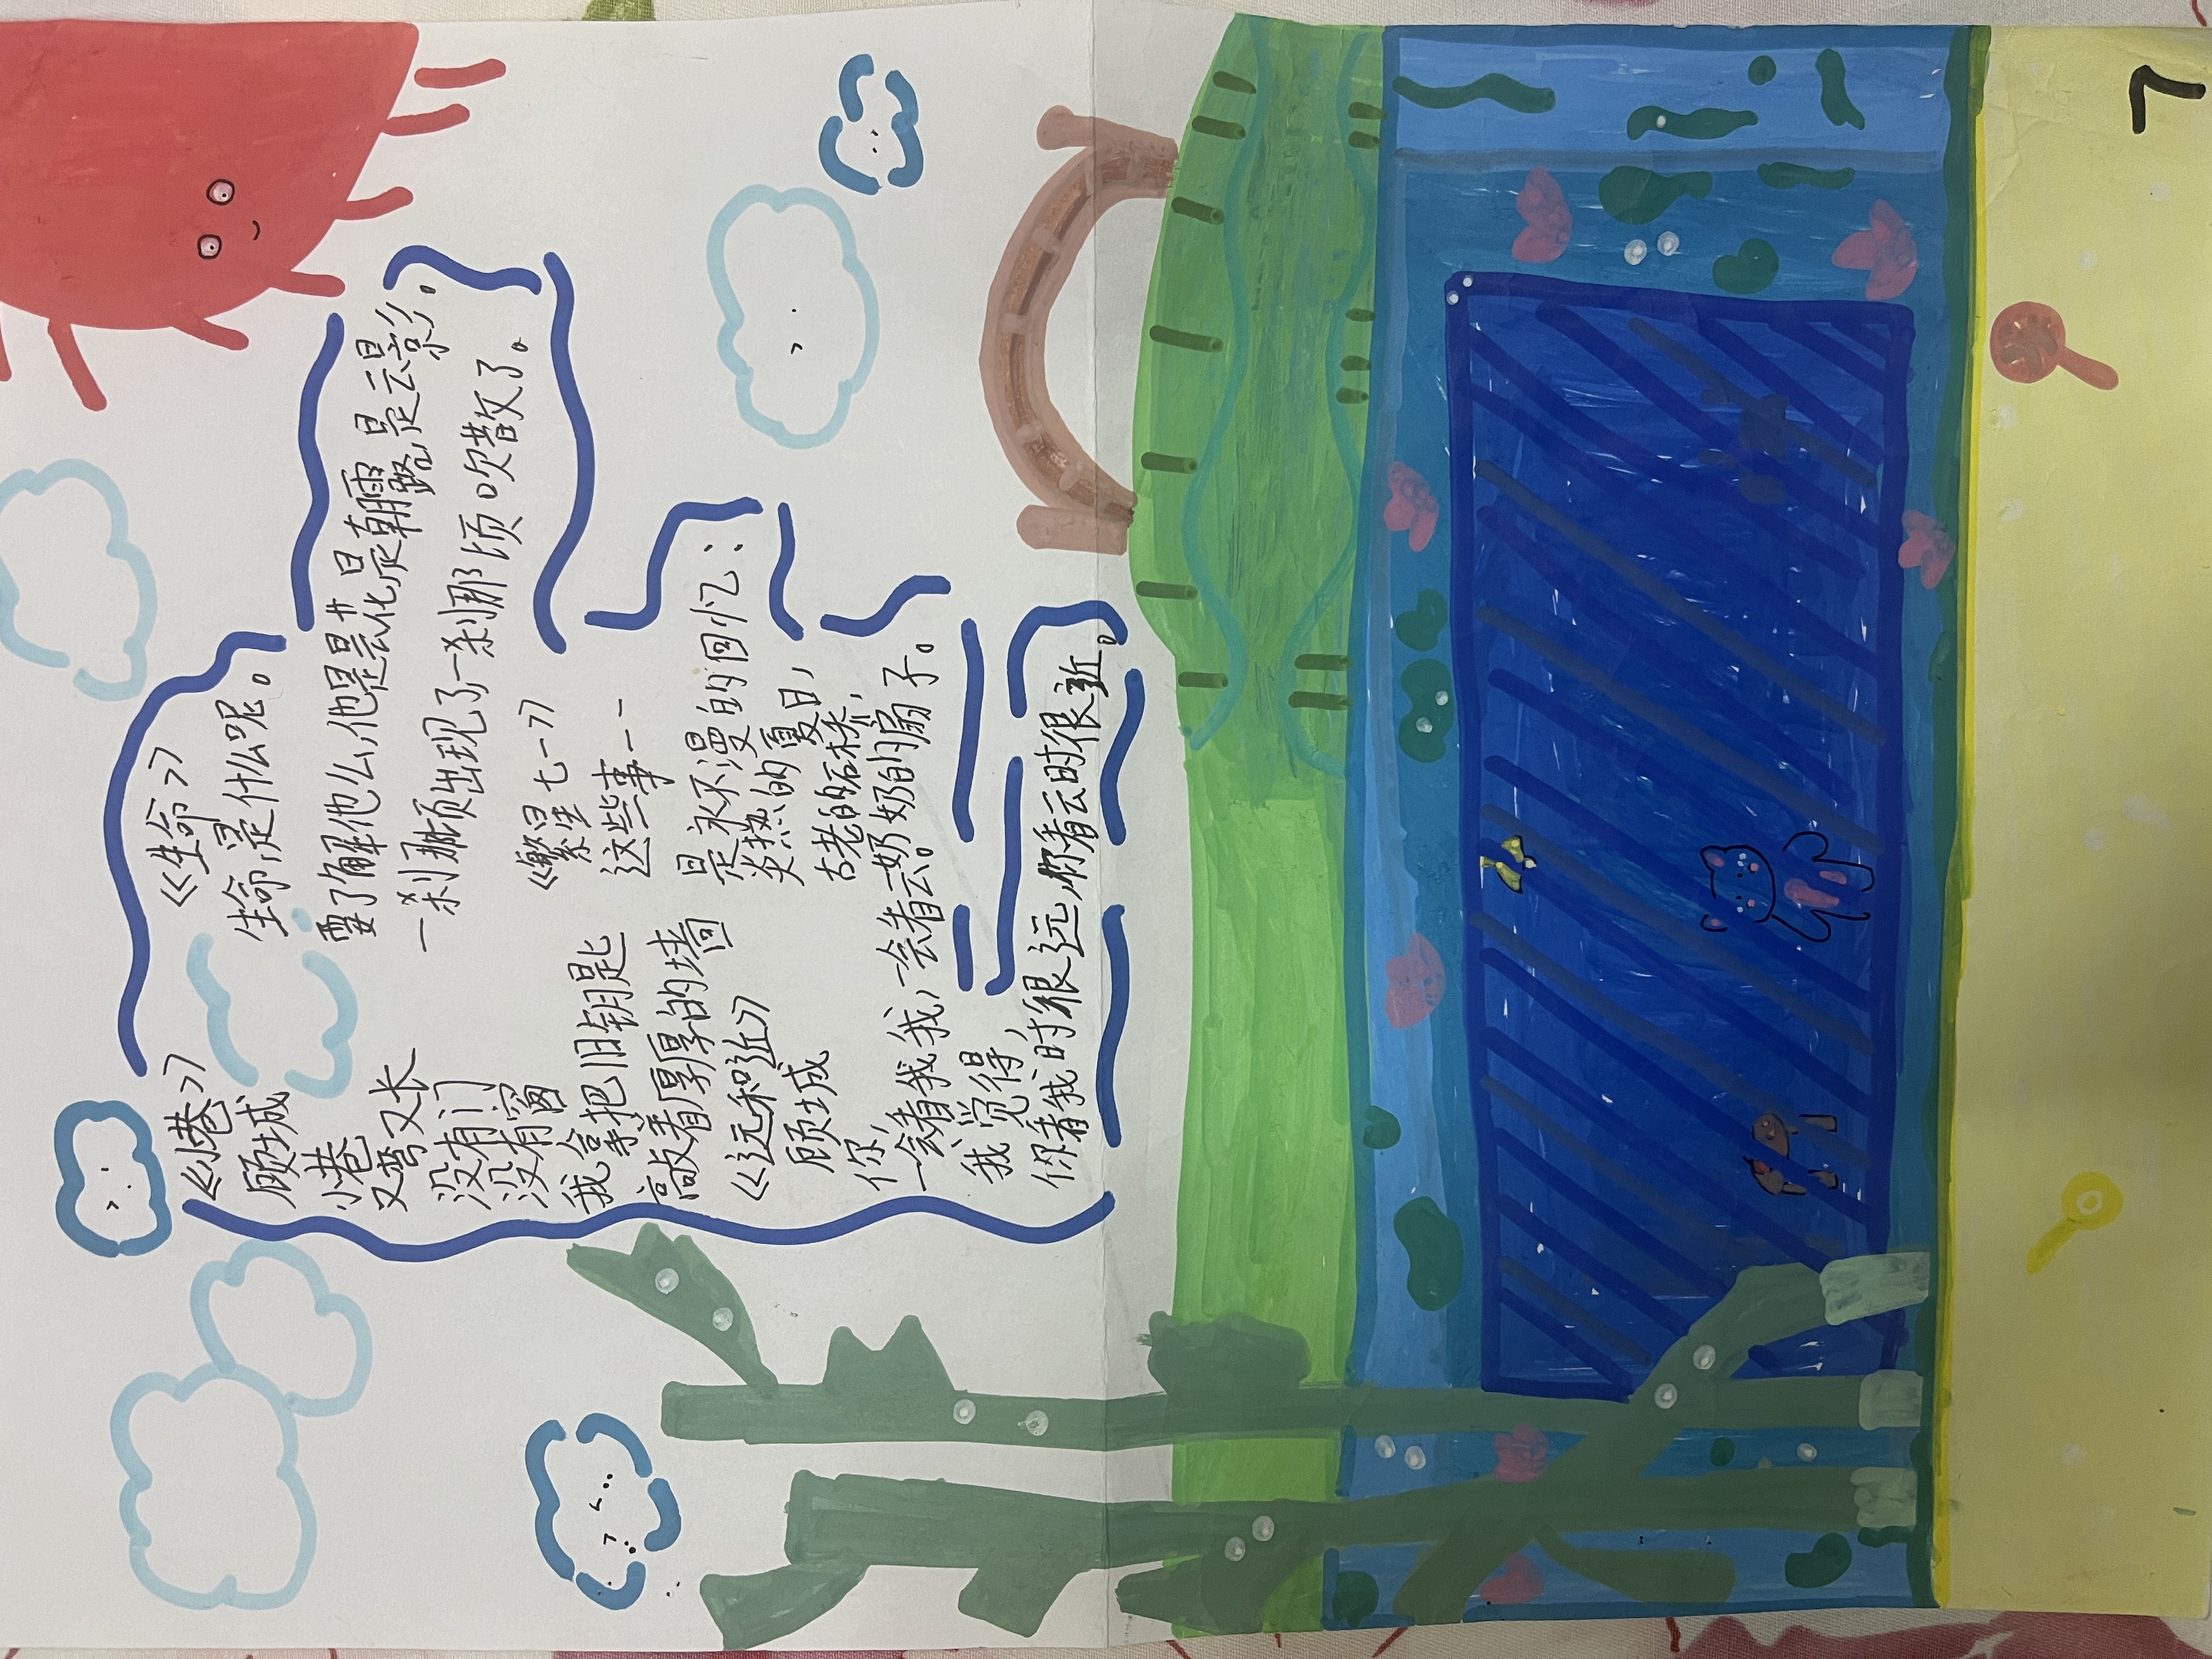 《小巷》
顾城
小巷
又弯又长
没有门
没有窗
我拿把旧钥匙
敲着厚厚的墙
《远和近》
顾城
你,
一会看我我,一会看云。
我觉得,
你看我时很远,你看云时很近。
《生命》
生命,是什么呢。
要了解他么,他是昙花是朝露是云影。
一刹那顷出现了一刹那顷吹散了。
《繁星 七一》
这些事——
是永不漫的回忆:
炎热的夏日,
古老的石桥,
奶奶的扇子。
7